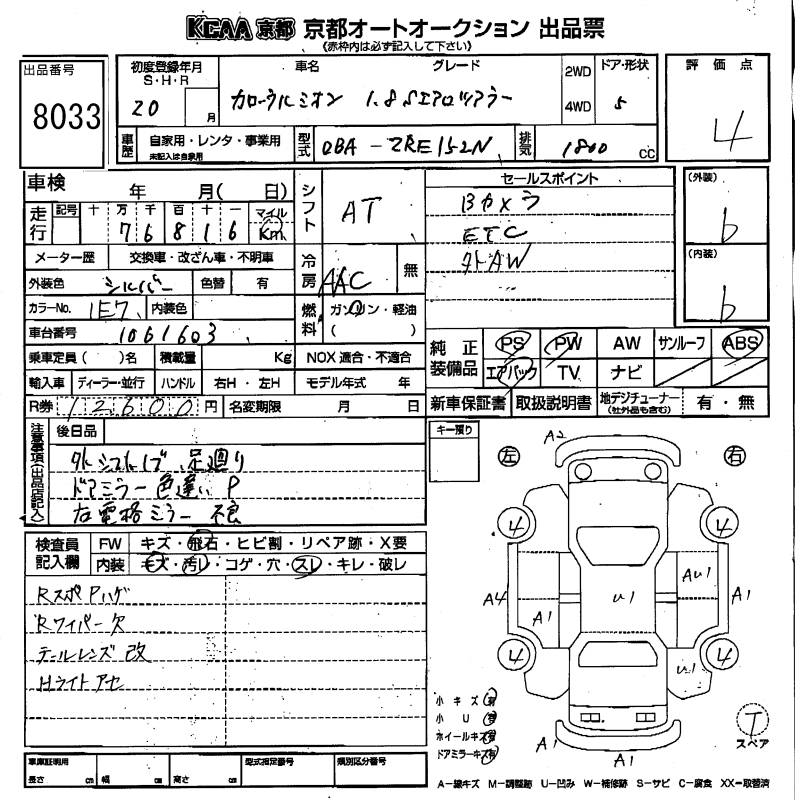 KCAA 京都 京都オートオークション 出品票
《赤枠内は必ず記入して下さい》
出品番号
8033
初度登録年月
S・H・R
20 月
車名 グレード
カローラルミオン 1.8Sエアロツアラー
2WD
4WD
ドア・形状
5
評価点
4
車歴 自家用・レンタ・事業用
未記入は自家用
型式 DBA-ZRE152N
排気 1800 cc
車検 年 月( 日)
走行 記号 十 万 千 百 十 一 マイル
7 6 8 1 6 Km
メーター歴 交換車・改ざん車・不明車
外装色 シルバー 色替 有
カラーNo. 1E7 内装色
車台番号 1061603
乗車定員( )名 積載量 Kg NOX 適合・不適合
輸入車 ディーラー・並行 ハンドル 右H・左H モデル年式 年
R券 12600円 名変期限 月 日
シフト AT
冷房 AAC 無
燃料 ガソリン・軽油
( )
セールスポイント
Bカメラ
ETC
外AW
(外装)
b
(内装)
b
純正装備品 PS PW AW サンルーフ ABS
エアバック TV ナビ
新車保証書 取扱説明書 地デジチューナー
(社外品も含む) 有・無
注意事項(出品店記入)
後日品
外シフトノブ 足廻り
ドアミラー色違い P
右電格ミラー 不良
キー預り
検査員記入欄
FW キズ・飛石・ヒビ割・リペア跡・X要
内装 モズ・汚レ・コゲ・穴・スレ・キレ・破レ
RスポPハゲ
Rワイパー欠
テールレンズ改
Hライトアセ
左 右
A2
4 4
A4 A1 U1 AU1 A1
U1
4 4
A1 A1
小キズ有
小U有
ホイールキズ有
ドアミラーキズ有
T
スペア
車庫証明用
長さ cm 幅 cm 高さ cm
型式指定番号
類別区分番号
A-線キズ M-調整跡 U-凹み W-補修跡 S-サビ C-腐食 XX-取替済